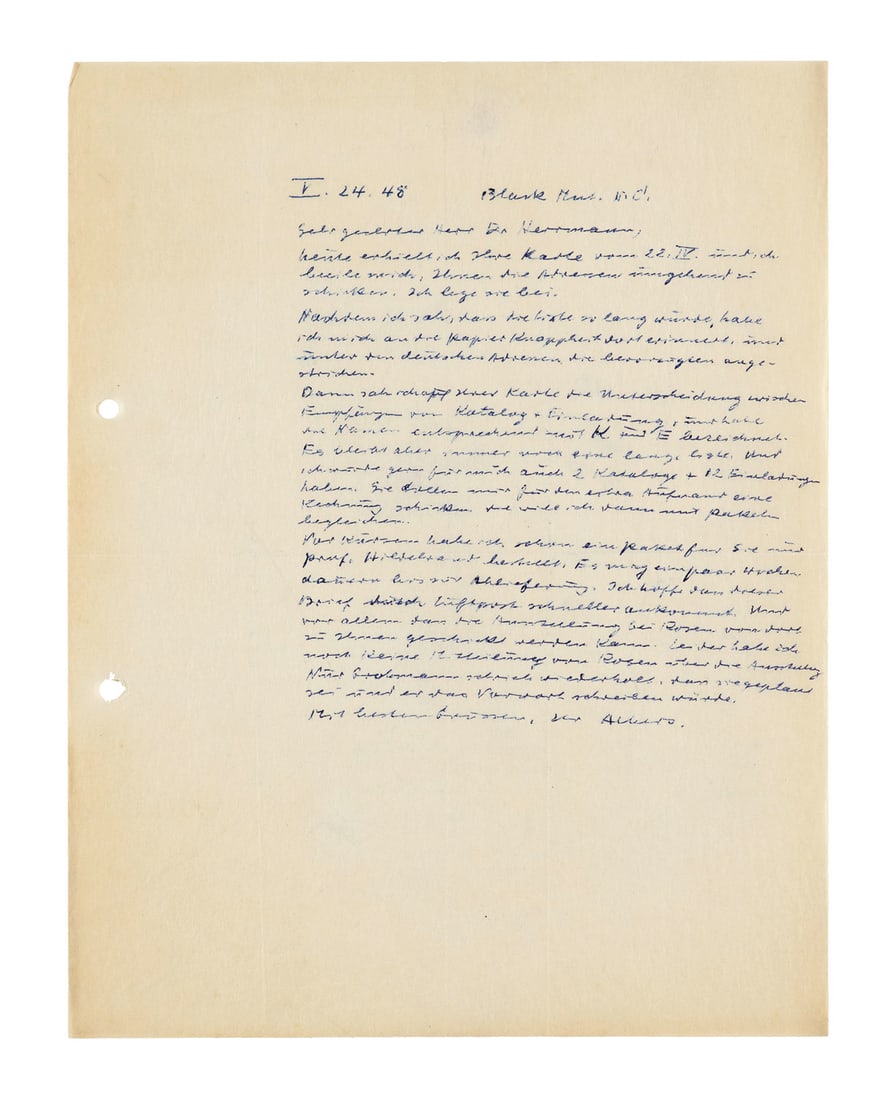 V. 24. 48 Black Mnt. N.C.
Sehr geehrter Herr Dr Herrmann,
heute erhielt ich Ihre Karte vom 22. IV. und ich
beeile mich, Ihnen die Adressen umgehend zu
schicken. Ich lege sie bei.
Nachdem ich sah, dass die Liste so lang würde, habe
ich mich an die Papier Knappheit dort erinnert, und
unter den deutschen Adressen die bevorzugten ange-
strichen.
Dann sah ich auf Ihrer Karte die Unterscheidung zwischen
Empfänger von Katalog + Einladung, und habe
die Namen entsprechend mit K und E bezeichnet.
Es bleibt aber immer noch eine lange Liste. Und
ich würde gern für mich auch 2 Kataloge + 12 Einladungen
haben. Sie sollen mir für den extra Aufwand eine
Rechnung schicken die will ich dann mit Paketen
begleichen.
Vor Kurzem habe ich schon ein Paket für Sie und
Prof. Hildebrand bestellt. Es mag ein paar Wochen
dauern bis zur Ablieferung. Ich hoffe dass dieser
Brief durch Luftpost schneller ankommt. Und
vor allem dass die Ausstellung bei Rosen von dort
zu Ihnen geschickt werden kann. Leider habe ich
noch keine Mitteilung von Rosen über die Ausstellung
Nur Grohmann schrieb wiederholt, dass sie geplant
sei und er das Vorwort schreiben würde.
Mit besten Grüssen, Ihr Albers.